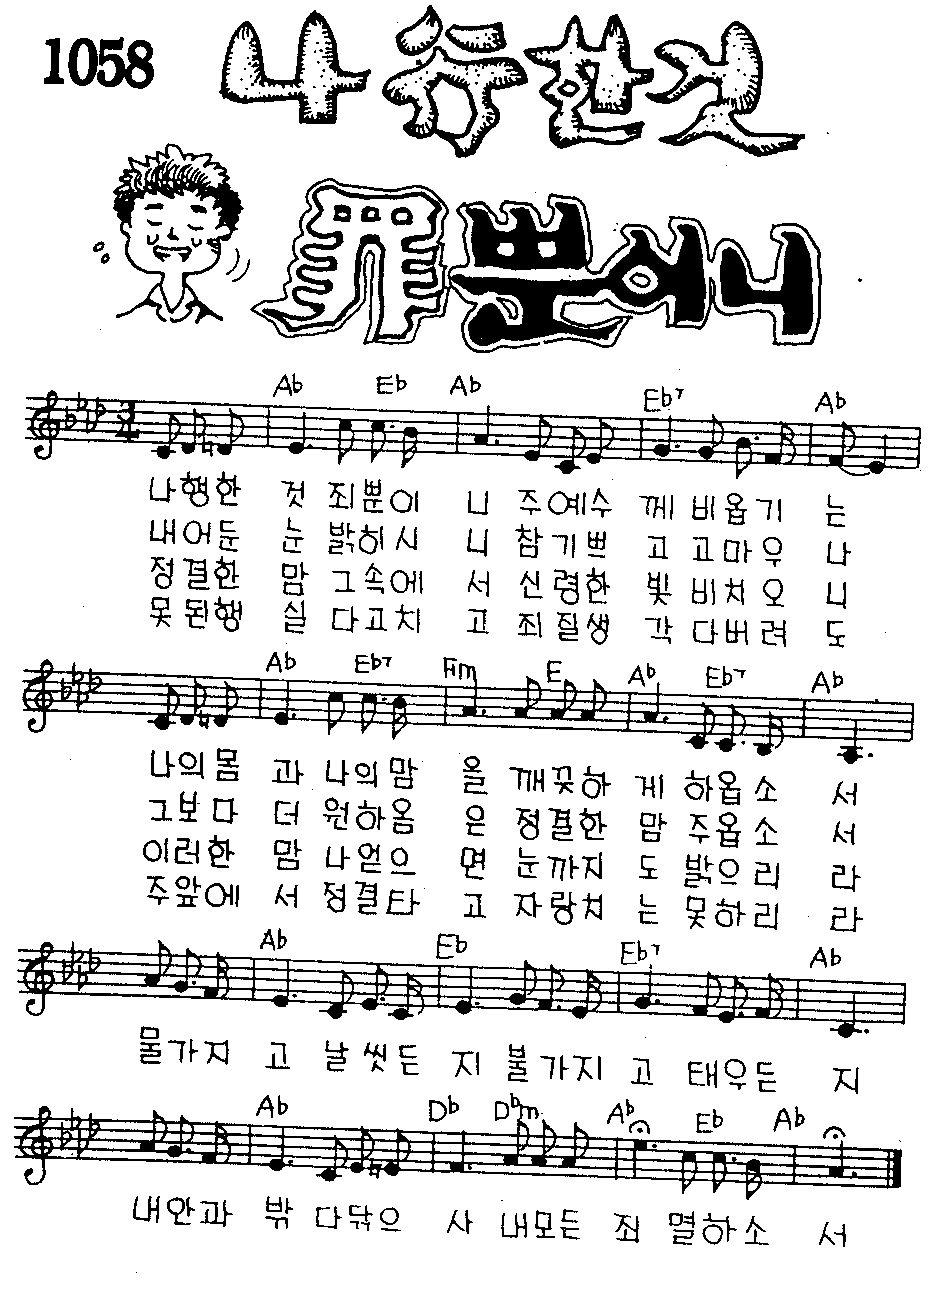 1058
나 행한 것
罪뿐이니
Ab Eb Ab Eb7 Ab
나행한 것 죄뿐이 니 주예수 께 비옵기 는
내어둔 눈 밝히시 니 참기쁘 고 고마우 나
정결한 맘 그속에 서 신령한 빛 비치오 니
못된행 실 다고치 고 죄질생 각 다버려 도
Ab Eb7 Fm E Ab Eb7 Ab
나의몸 과 나의맘 을 깨끗하 게 하옵소 서
그보다 더 원하옴 은 정결한 맘 주옵소 서
이러한 맘 나얻으 면 눈까지 도 밝으리 라
주앞에 서 정결타 고 자랑치 는 못하리 라
Ab Eb Eb7 Ab
물가지 고 날씻든 지 불가지 고 태우든 지
Ab Db Dbm Ab Eb Ab
내안과 밖 다닦으 사 내모든 죄 멸하소 서